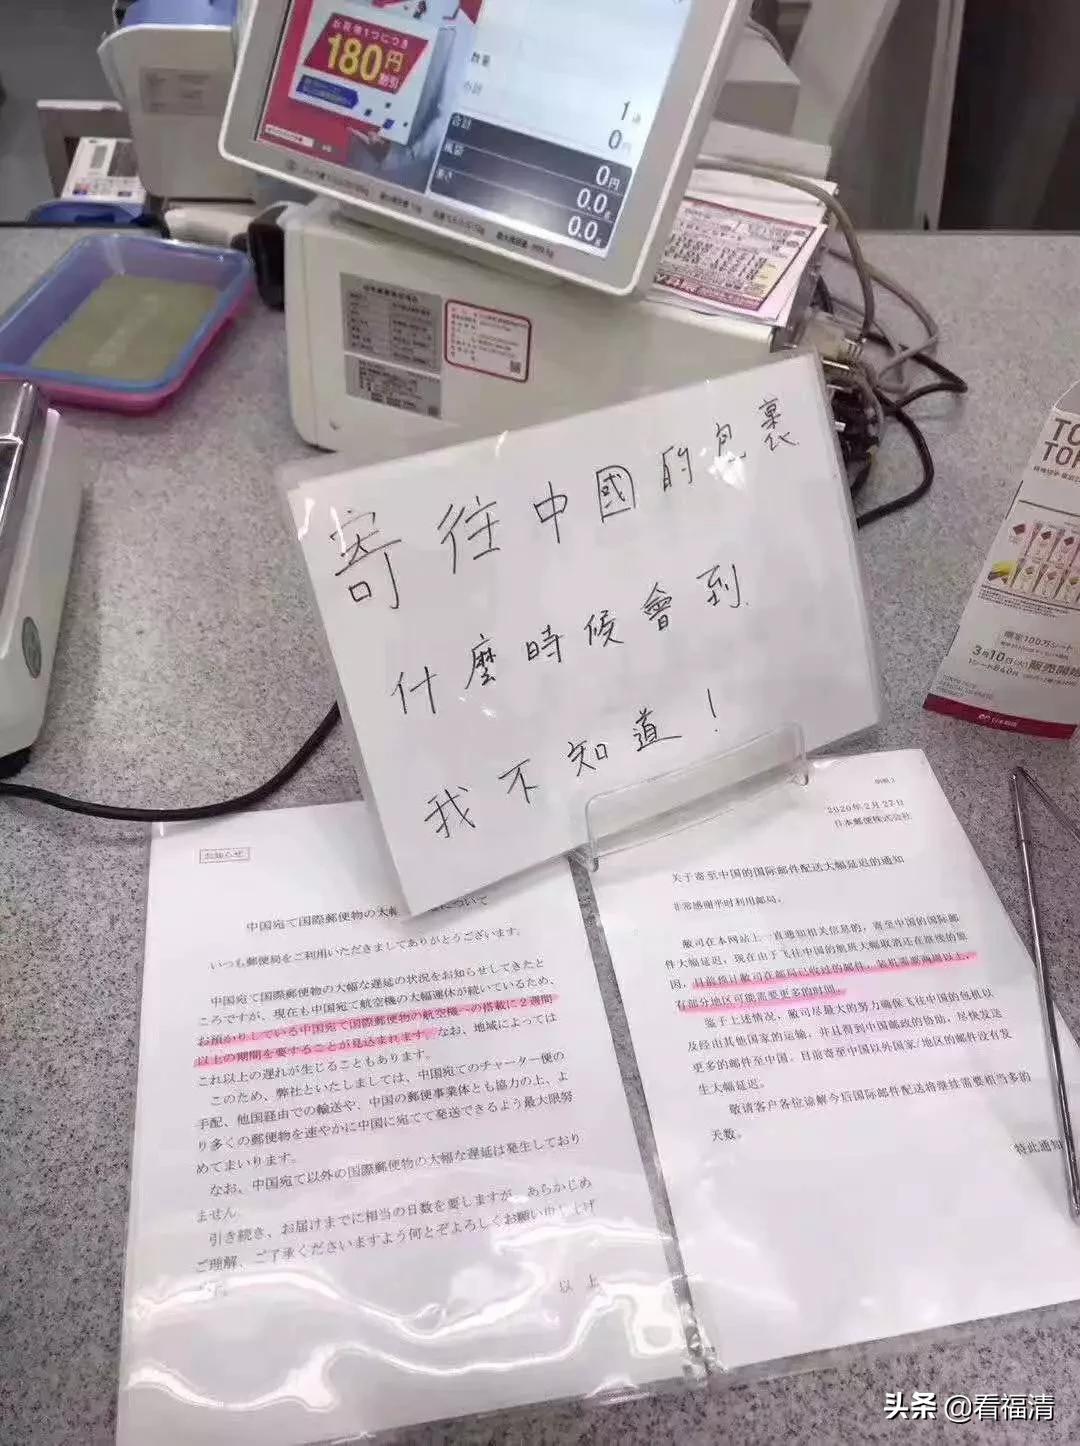 お荷物1つにつき
180円
割引
数量
小計
1通
0円
合計
0円
重さ
0.0g
0.0g
寄往中國的包裹
什麼時候會到
我不知道!
3月10日(火)販売開始
日本郵便
お知らせ
中国宛て国際郵便物の大幅
について
いつも郵便局をご利用いただきましてありがとうございます。
中国宛て国際郵便物の大幅な遅延の状況をお知らせしてきたと
ころですが、現在も中国宛て航空機の大幅運休が続いているため、
お預かりしている中国宛て国際郵便物の航空機への搭載に2週間
以上の期間を要することが見込まれます。なお、地域によっては
これ以上の遅れが生じることもあります。
このため、弊社といたしましては、中国宛てのチャーター便の
手配、他国経由での輸送や、中国の郵便事業体とも協力の上、よ
り多くの郵便物を速やかに中国に宛てて発送できるよう最大限努
めてまいります。
なお、中国宛て以外の国際郵便物の大幅な遅延は発生しており
ません。
引き続き、お届けまでに相当の日数を要しますが、あらかじめ
ご理解、ご了承くださいますよう何とぞよろしくお願い申し上げ
ます。
以 上
別紙2
2020年2月27日
日本郵便株式会社
关于寄至中国的国际邮件配送大幅延迟的通知
非常感谢平时利用邮局。
敝司在本网站上一直通知相关信息的,寄至中国的国际邮
件大幅延迟,现在由于飞往中国的航班大幅取消还在继续的原
因,目前预计敝司在邮局已收过的邮件,装机需要两周以上,
有部分地区可能需要更多的时间。
鉴于上述情况,敝司尽最大的努力确保飞往中国的包机以
及经由其他国家的运输,并且得到中国邮政的协助,尽快发送
更多的邮件至中国。目前寄至中国以外国家/地区的邮件没有发
生大幅延迟。
敬请客户各位谅解今后国际邮件配送将继续需要相当多的
天数。
特此通知
头条 @看福清